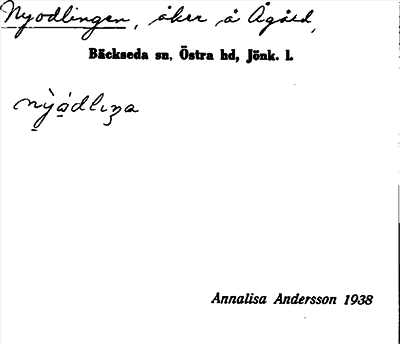 Nyodlingen, åker å Ågård,
Bäckseda sn, Östra hd, Jönk. l.
Annalisa Andersson 1938